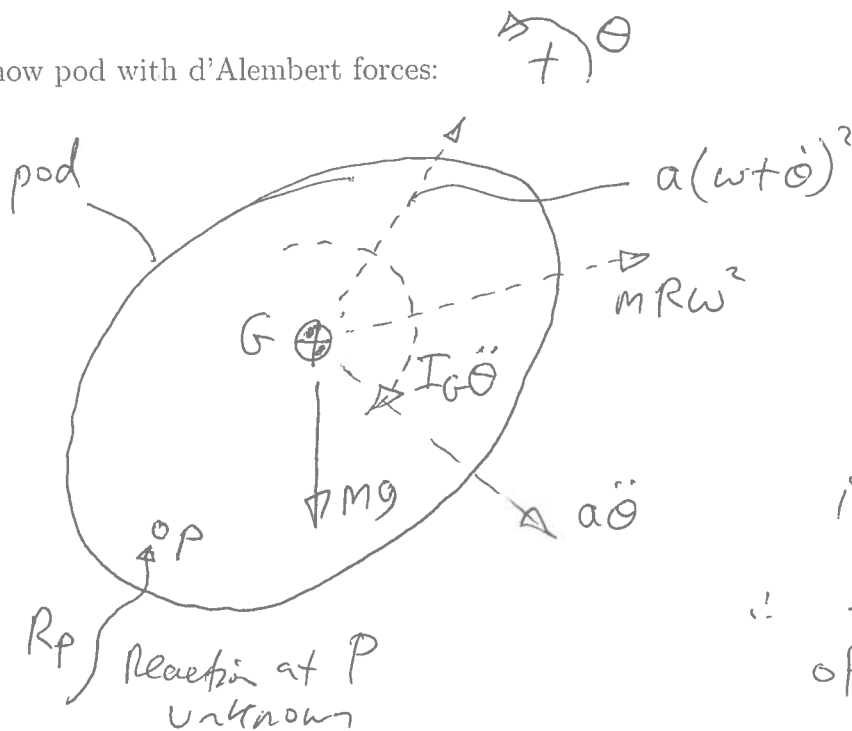 now pod with d'Alembert forces:
+ θ
pod
a(ω+θ̇)²
mRω²
G
I_G θ̈
Mg
aθ̈
P
R_P
Reaction at P
unknown
∴
of